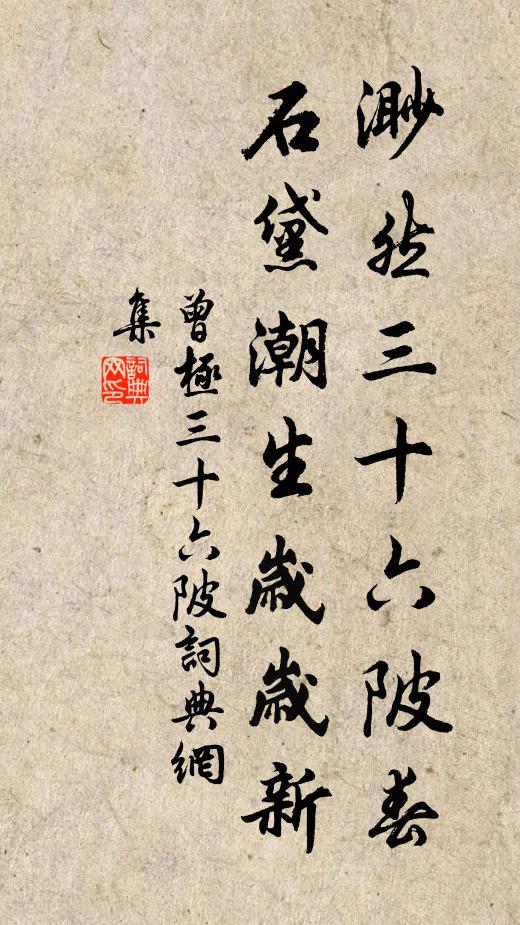 渺然三十六陂春
石黛潮生歲歲新
曾極三十六陂詞典網
集
詞典
网印